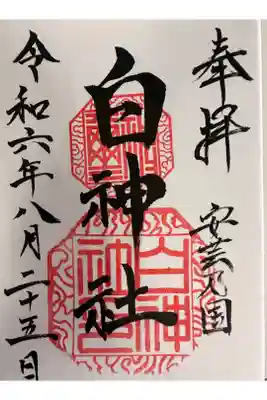 奉拝
安芸乃国
白神社
令和六年八月二十五日